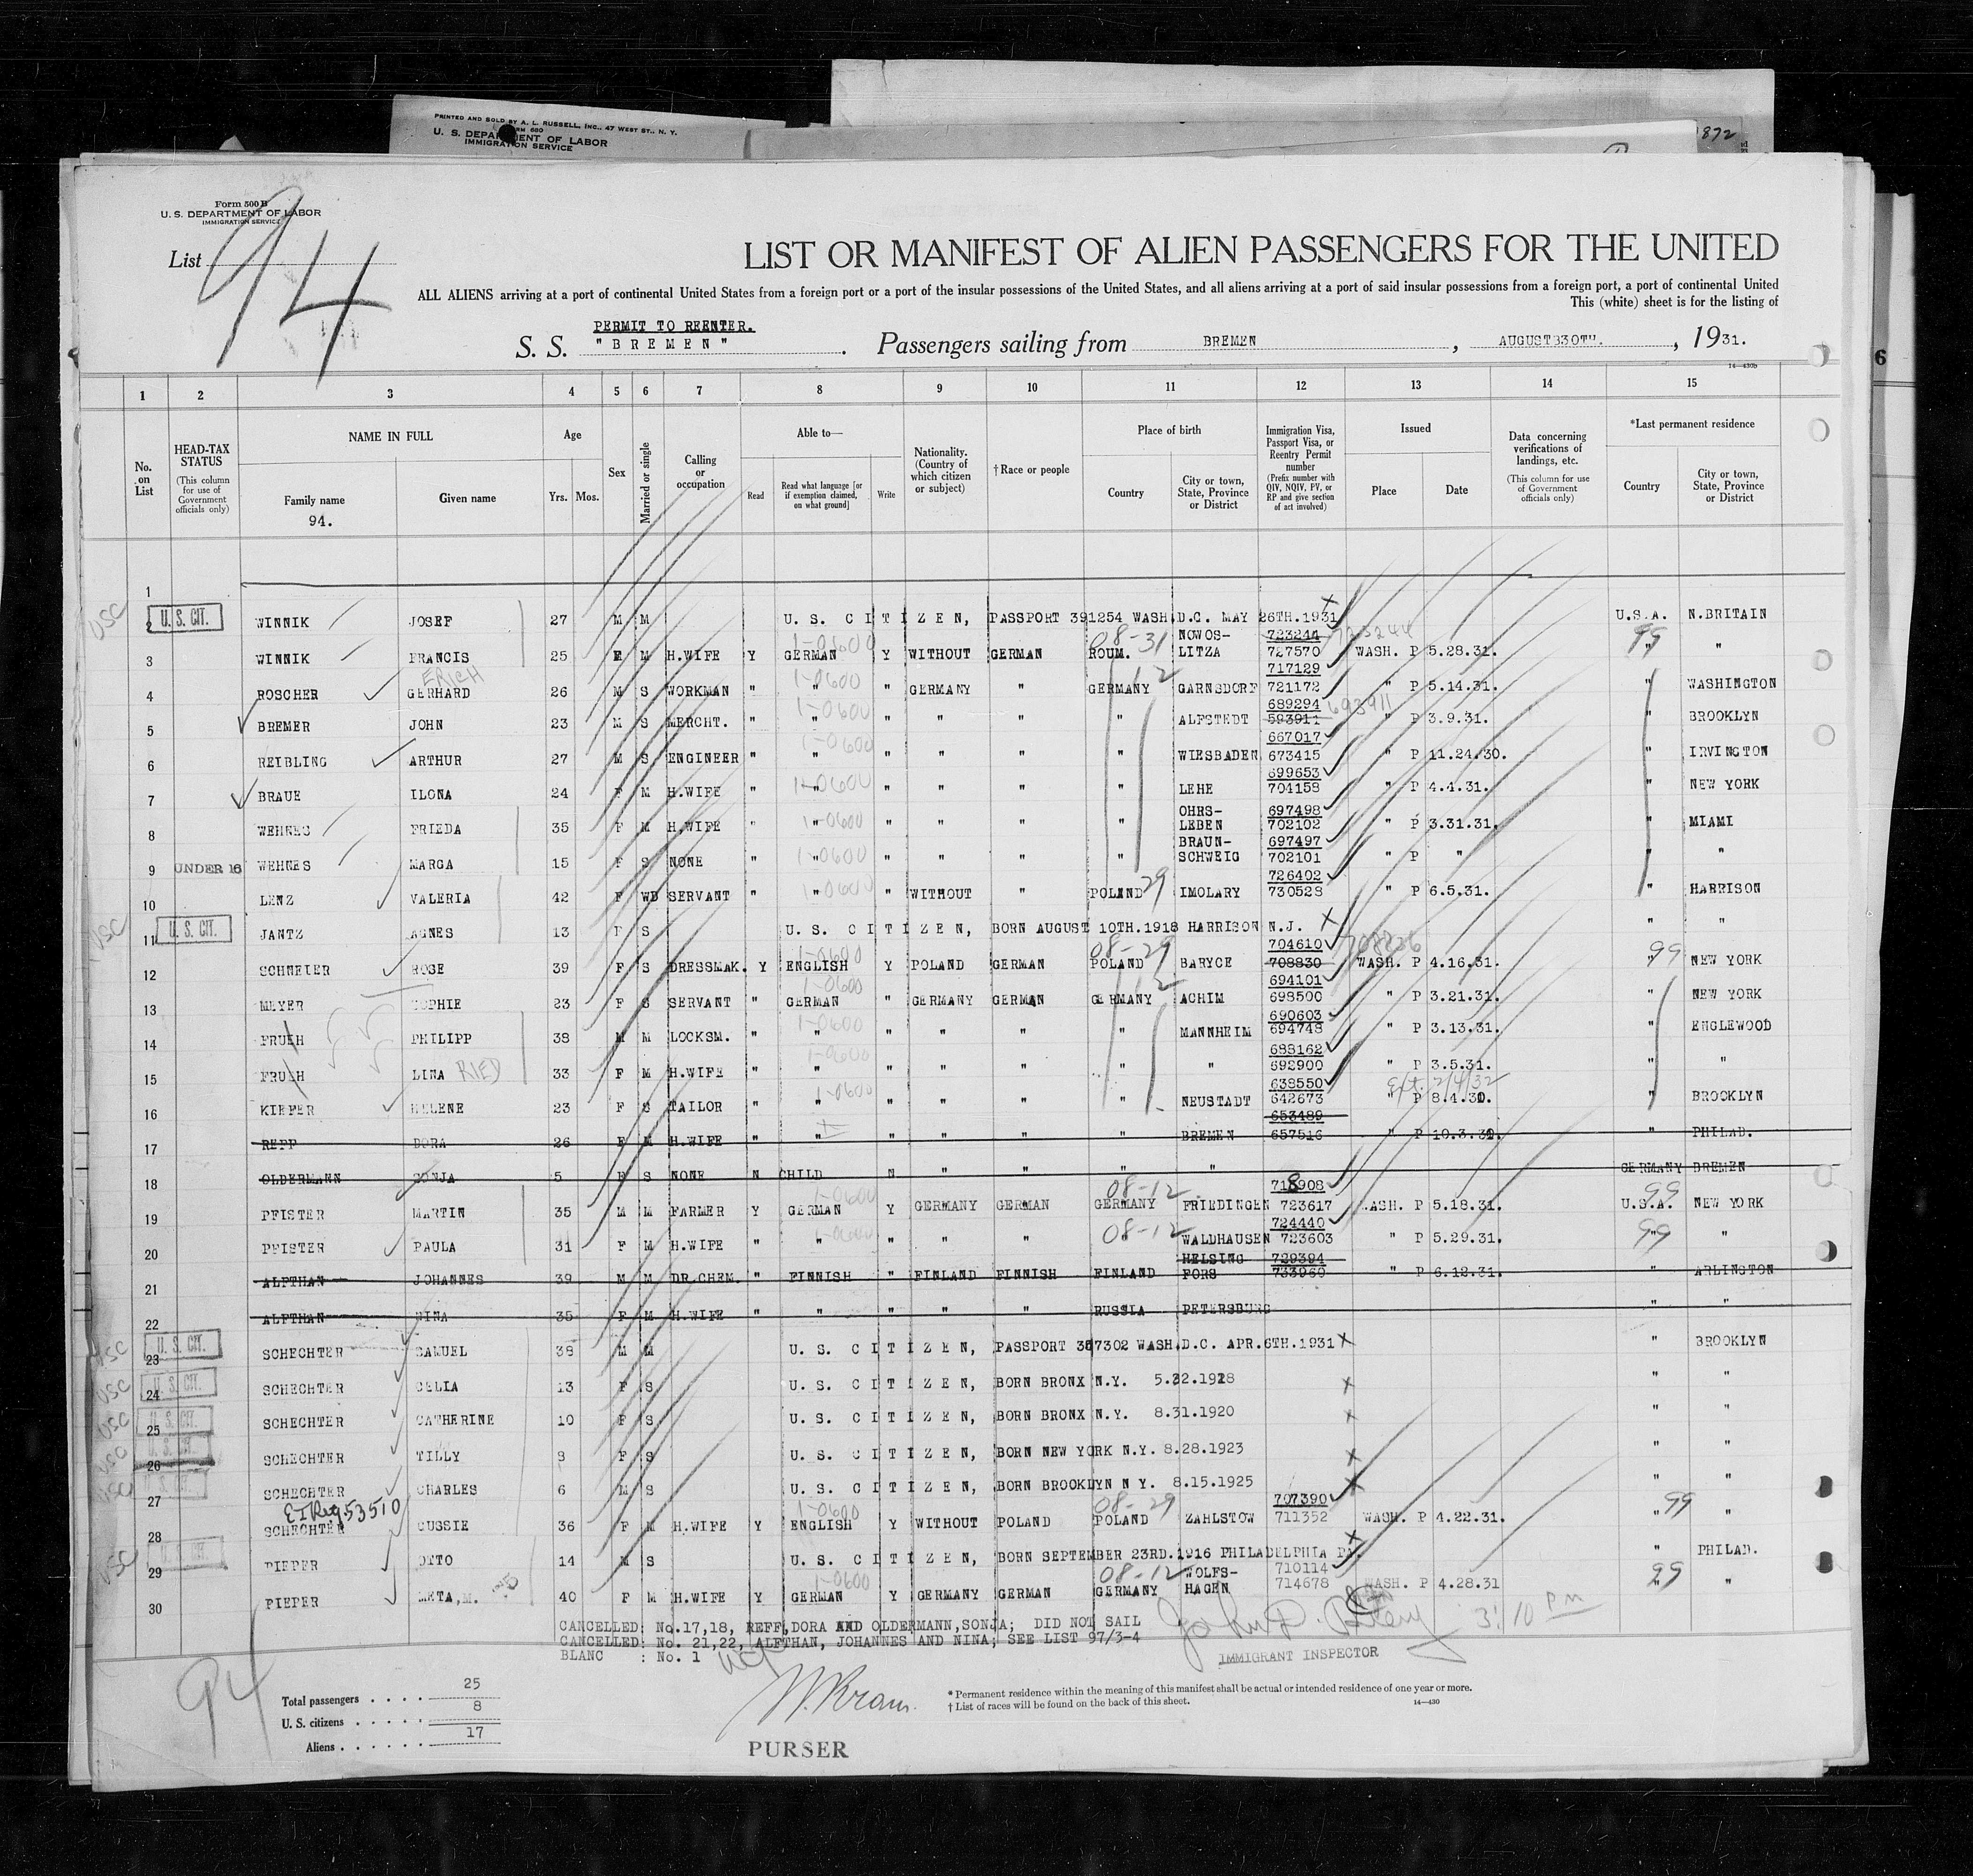 872
PRINTED AND SOLD BY A. L. RUSSELL, INC., 47 WEST ST., N. Y.
U. S. DEPARTMENT OF LABOR
IMMIGRATION SERVICE
Form 500 B
U. S. DEPARTMENT OF LABOR
IMMIGRATION SERVICE
List 94
LIST OR MANIFEST OF ALIEN PASSENGERS FOR THE UNITED
ALL ALIENS arriving at a port of continental United States from a foreign port or a port of the insular possessions of the United States, and all aliens arriving at a port of said insular possessions from a foreign port, a port of continental United
This (white) sheet is for the listing of
PERMIT TO REENTER.
S. S. "BREMEN". Passengers sailing from BREMEN, AUGUST 30TH., 1931.
14—430b
6
1 2 3 4 5 6 7 8 9 10 11 12 13 14 15
No. on List
HEAD-TAX STATUS (This column for use of Government officials only)
NAME IN FULL
Family name
94.
Given name
Age
Yrs. Mos.
Sex
Married or single
Calling or occupation
Able to—
Read
Read what language [or if exemption claimed, on what ground]
Write
Nationality. (Country of which citizen or subject)
†Race or people
Place of birth
Country
City or town, State, Province or District
Immigration Visa, Passport Visa, or Reentry Permit number (Prefix number with QIV, NQIV, PV, or RP and give section of act involved)
Issued
Place
Date
Data concerning verifications of landings, etc. (This column for use of Government officials only)
*Last permanent residence
Country
City or town, State, Province or District
1
USC U. S. CIT. 2 WINNIK JOSEF 27 M M U. S. CITIZEN, PASSPORT 391254 WASH.D.C. MAY 26TH.1931 U.S.A. N.BRITAIN
3 WINNIK FRANCIS 25 F M H.WIFE Y GERMAN 1-0600 Y WITHOUT GERMAN ROUM. 08-31 NOWOS-LITZA 723244 727570 723244 WASH. P 5.28.31. 99 " "
4 ROSCHER GERHARD ERICH 26 M S WORKMAN " " 1-0600 " GERMANY " GERMANY 12 GARNSDORF 717129 721172 " P 5.14.31. " WASHINGTON
5 BREMER JOHN 23 M S MERCHT. " " 1-0600 " " " " ALFSTEDT 689294 593911 693911 " P 3.9.31. " BROOKLYN
6 REIBLING ARTHUR 27 M S ENGINEER " " 1-0600 " " " " WIESBADEN 667017 673415 " P 11.24.30. " IRVINGTON
7 BRAUE ILONA 24 F M H.WIFE " " 1-0600 " " " " LEHE 699653 704158 " P 4.4.31. " NEW YORK
8 WEHNES FRIEDA 35 F M H.WIFE " " 1-0600 " " " " OHRS-LEBEN 697498 702102 " P 3.31.31. " MIAMI
9 UNDER 16 WEHNES MARGA 15 F S NONE " " 1-0600 " " " " BRAUN-SCHWEIG 697497 702101 " P " " "
10 LENZ VALERIA 42 F WD SERVANT " " 1-0600 " WITHOUT " POLAND 29 IMOLARY 726402 730528 " P 6.5.31. " HARRISON
USC U. S. CIT. 11 JANTZ AGNES 13 F S U. S. CITIZEN, BORN AUGUST 10TH.1918 HARRISON N.J. " "
12 SCHNEIER ROSE 39 F S DRESSMAK. Y ENGLISH 1-0600 Y POLAND GERMAN POLAND 08-29 BARYCE 704610 708830 WASH. P 4.16.31. 99 " NEW YORK
13 MEYER SOPHIE 23 F S SERVANT " GERMAN 1-0600 " GERMANY GERMAN GERMANY 12 ACHIM 694101 698500 " P 3.21.31. NEW YORK
14 FRUEH PHILIPP 38 M M LOCKSM. " " 1-0600 " " " " MANNHEIM 690603 694748 " P 3.13.31. " ENGLEWOOD
15 FRUEH LINA RIED 33 F M H.WIFE " " 1-0600 " " " " " 688162 692900 " P 3.5.31. " "
16 KIEFER HELENE 23 F S TAILOR " " 1-0600 " " " " NEUSTADT 638550 642673 Ext. 2/4/32 " P 8.4.30. " BROOKLYN
17 REPP DORA 26 F M H.WIFE " " " " " " BREMEN 653489 657516 " P 10.3.30. " PHILAD.
18 OLDERMANN SONJA 5 F S NONE N CHILD N " " " " GERMANY BREMEN
19 PFISTER MARTIN 35 M M FARMER Y GERMAN 1-0600 Y GERMANY GERMAN GERMANY 08-12 FRIEDINGEN 718908 723617 WASH. P 5.18.31. 99 U.S.A. NEW YORK
20 PFISTER PAULA 31 F M H.WIFE " " 1-0600 " " " " 08-12 WALDHAUSEN 724440 723603 " P 5.29.31. 99 " "
21 ALFTHAN JOHANNES 39 M M DR.CHEM. " FINNISH " FINLAND FINNISH FINLAND HELSING FORS 729394 733960 " P 6.12.31. " ARLINGTON
22 ALFTHAN NINA 35 F M H.WIFE " " " " " RUSSIA PETERSBURG " "
USC U. S. CIT. 23 SCHECHTER SAMUEL 38 M M U. S. CITIZEN, PASSPORT 387302 WASH.D.C. APR.6TH.1931 " BROOKLYN
USC U. S. CIT. 24 SCHECHTER CELIA 13 F S U. S. CITIZEN, BORN BRONX N.Y. 5.22.1918 " "
USC U. S. CIT. 25 SCHECHTER CATHERINE 10 F S U. S. CITIZEN, BORN BRONX N.Y. 8.31.1920 " "
USC U. S. CIT. 26 SCHECHTER TILLY 8 F S U. S. CITIZEN, BORN NEW YORK N.Y. 8.28.1923 " "
USC U. S. CIT. 27 SCHECHTER CHARLES 6 M S U. S. CITIZEN, BORN BROOKLYN N Y. 8.15.1925 " "
28 SCHECHTER GUSSIE 36 F M H.WIFE Y ENGLISH 1-0600 Y WITHOUT POLAND POLAND 08-29 ZAHLSTOW 707390 711352 WASH. P 4.22.31. 99 " "
USC U. S. CIT. 29 PIEPER OTTO 14 M S U. S. CITIZEN, BORN SEPTEMBER 23RD.1916 PHILADELPHIA PA. " PHILAD.
30 PIEPER META,M. 40 F M H.WIFE Y GERMAN 1-0600 Y GERMANY GERMAN GERMANY 08-12 WOLFS-HAGEN 710114 714678 WASH. P 4.28.31 99 " "
CANCELLED: No.17,18, REFF,DORA AND OLDERMANN,SONJA; DID NOT SAIL
CANCELLED: No. 21,22, ALFTHAN, JOHANNES AND NINA; SEE LIST 97/3-4
BLANC : No. 1
3:10 PM
IMMIGRANT INSPECTOR
94
Total passengers . . . . 25
U. S. citizens . . . . . 8
Aliens . . . . . . 17
PURSER
* Permanent residence within the meaning of this manifest shall be actual or intended residence of one year or more.
† List of races will be found on the back of this sheet.
14—430